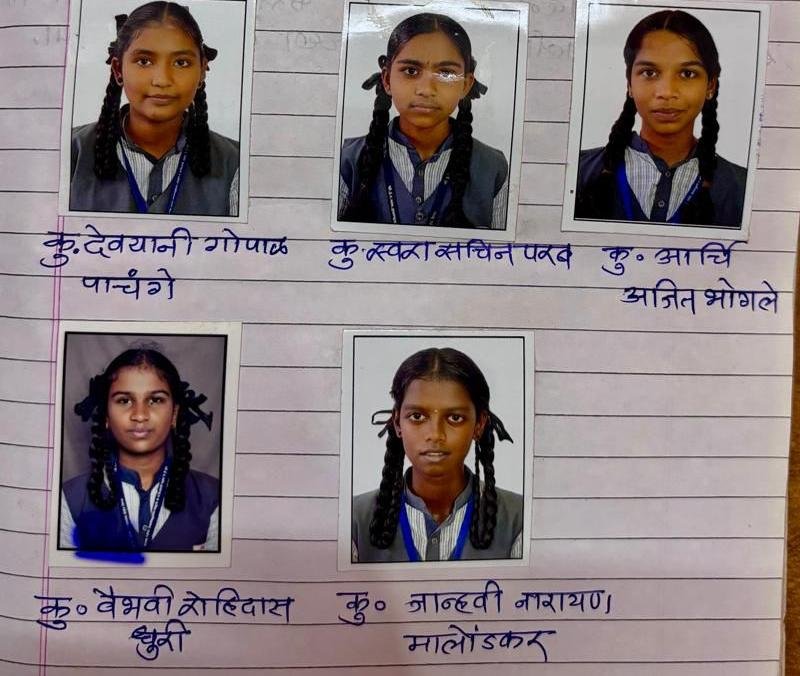 कु. देवयानी गोपाळ
पाचंगे
कु. स्वरा सचिन परब
कु॰ आर्चि
अजित भोगले
कु॰ वैभवी रोहिदास
धुरी
कु॰ जान्हवी नारायण
मालोंडकर